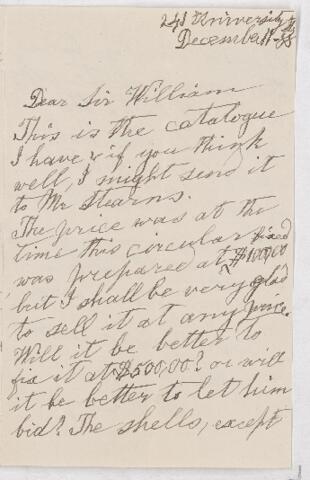 241 University St
December 11 - 88
Dear Sir William
This is the catalogue
I have & if you think
well, I might send it
to Mr Stearns.
The price was at the
time this circular fixed
was prepared at $1000.00
but I shall be very glad
to sell it at any price.
Will it be better to
fix it at $500,00? or will
it be better to let him
bid? The shells, except